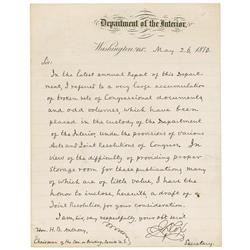 Department of the Interior,
Washington, D.C. May 26, 1870.
Sir,
In the latest annual Report of this Department,
I referred to a very large accumulation
of broken sets of Congressional documents
and odd volumes which have been
placed in the custody of the Department
of the Interior, under the provisions of various
Acts and Joint Resolutions of Congress. In
view of the difficulty of providing proper
storage room for these publications, many
of which are of little value, I have the
honor to inclose, herewith, a draft of a
Joint Resolution for your consideration.
I am, Sir, very respectfully, your obt. servt.
Hon. H. B. Anthony,
Chairman of the Com. on Printing,
Secretary.